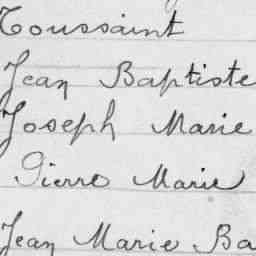 Toussaint
Jean Baptiste
Joseph Marie
Pierre Marie
Jean Marie Ba